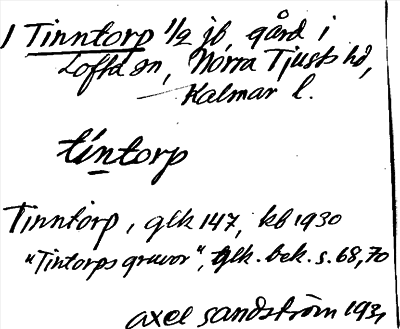 1 Tinntorp 1/2 jb, gård i
Lofta sn, Norra Tjusts hd,
Kalmar l.
tíntorp
Tinntorp, glk 147, kb 1930
"Tintorps gruvor", glk. bek. s. 68, 70
Axel Sandström 193